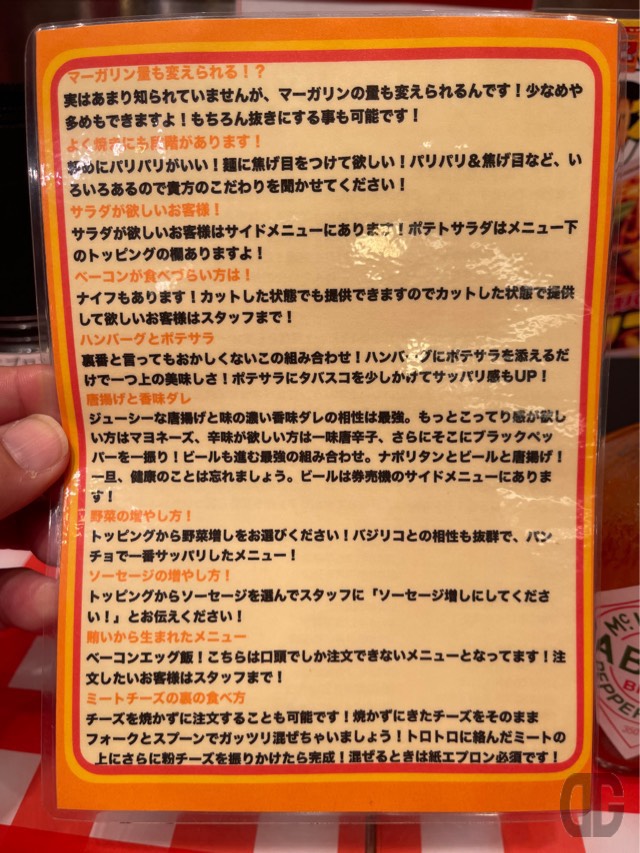 マーガリン量も変えられる！？
実はあまり知られていませんが、マーガリンの量も変えられるんです！少なめや
多めもできますよ！もちろん抜きにする事も可能です！
よく焼きにも段階があります！
めにパリパリがいい！麺に焦げ目をつけて欲しい！パリパリ＆焦げ目など、い
ろいろあるので貴方のこだわりを聞かせてください！
サラダが欲しいお客様！
サラダが欲しいお客様はサイドメニューにあります！ポテトサラダはメニュー下
のトッピングの欄ありますよ！
ベーコンが食べづらい方は！
ナイフもあります！カットした状態でも提供できますのでカットした状態で提供
して欲しいお客様はスタッフまで！
ハンバーグとポテサラ
裏番と言ってもおかしくないこの組み合わせ！ハンバーグにポテサラを添えるだ
けで一つ上の美味しさ！ポテサラにタバスコを少しかけてサッパリ感もUP！
唐揚げと香味ダレ
ジューシーな唐揚げと味の濃い香味ダレの相性は最強。もっとこってり感が欲し
い方はマヨネーズ、辛味が欲しい方は一味唐辛子、さらにそこにブラックペッ
パーを一振り！ビールも進む最強の組み合わせ。ナポリタンとビールと唐揚げ！
一旦、健康のことは忘れましょう。ビールは券売機のサイドメニューにありま
す！
野菜の増やし方！
トッピングから野菜増しをお選びください！バジリコとの相性も抜群で、パン
チョで一番サッパリしたメニュー！
ソーセージの増やし方！
トッピングからソーセージを選んでスタッフに「ソーセージ増しにしてくださ
い！」とお伝えください！
賄いから生まれたメニュー
ベーコンエッグ飯！こちらは口頭でしか注文できないメニューとなってます！注
文したいお客様はスタッフまで！
ミートチーズの裏の食べ方
チーズを焼かずに注文することも可能です！焼かずにきたチーズをそのまま
フォークとスプーンでガッツリ混ぜちゃいましょう！トロトロに絡んだミートの
上にさらに粉チーズを振りかけたら完成！混ぜるときは紙エプロン必須です！